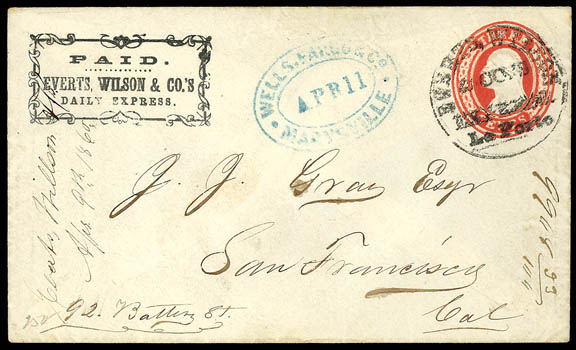 PAID.
EVERTS, WILSON & CO.'S
DAILY EXPRESS.
WELLS, FARGO & Co
APR 11
MARYSVILLE
EVERTS, WILSON
& CO'S
La Porte
THREE
J. J. Gray Esqr
San Francisco
Cal
92. Battery St.
Apr 9th, 1864